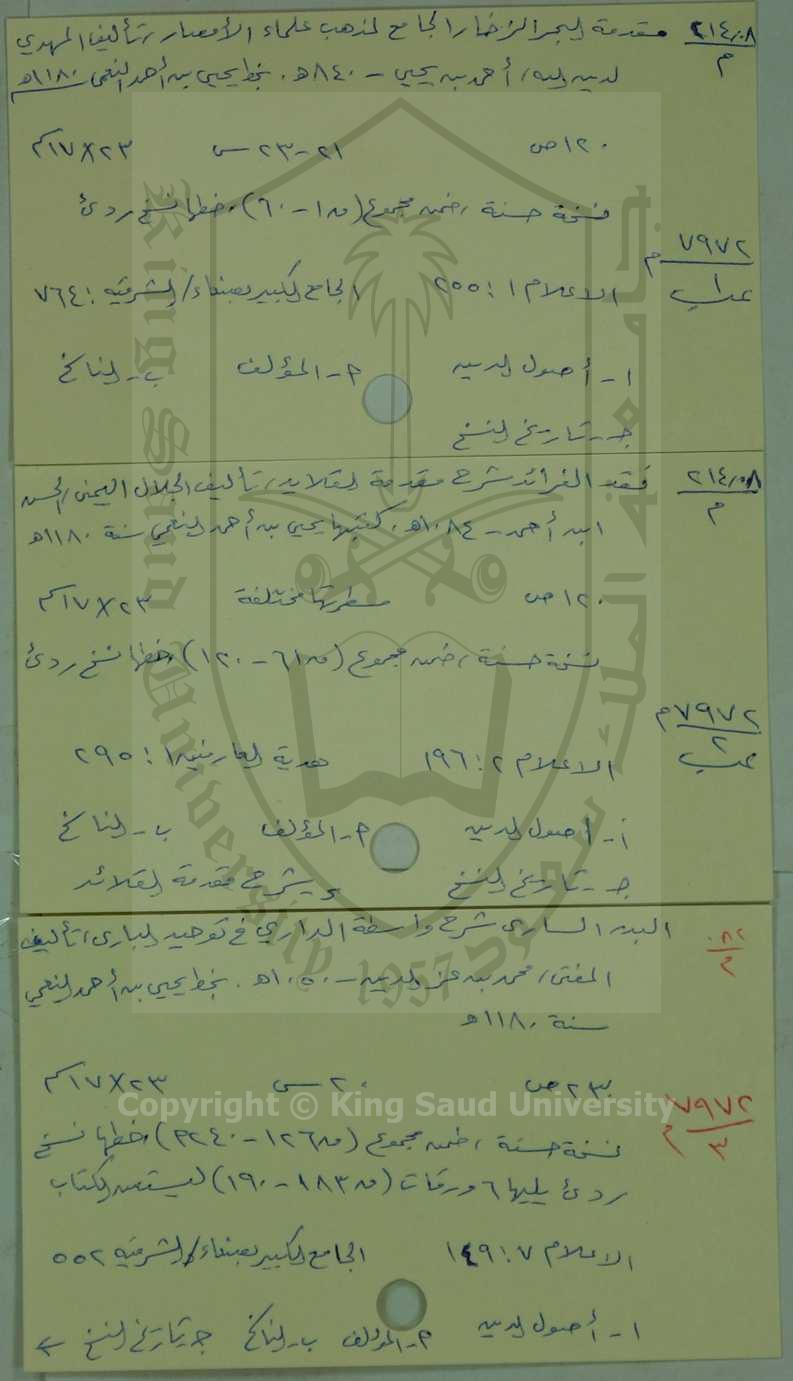 ٢١٤,٠٨
م
مقدمة البحر الزخار الجامع لمذهب علماء الأمصار، تأليف المهدي
لدين الله، أحمد بن يحيى - ٨٤٠هـ. بخط يحيى بن أحمد النعمي ١١٨٠هـ
١٢٠ص ٢١-٢٣س ٢٣×١٧سم
نسخة حسنة، ضمن مجموع (ق١-٦٠)، خطها نسخ ردئ
٧٩٧٢ م
١
الاعلام ١: ٢٥٥ الجامع الكبير بصنعاء/الشرقية: ٧٦٤
١- أصول الدين أ- المؤلف ب- الناسخ
ج- تاريخ النسخ
٢١٤,٠٨
م
فقد الفرائد شرح مقدمة القلايد، تأليف الجلال اليمني، الحسن
ابن أحمد - ١٠٨٤هـ. كتبها يحيى بن أحمد النعمي سنة ١١٨٠هـ
١٢٠ص مسطرتها مختلفة ٢٣×١٧سم
نسخة حسنة، ضمن مجموع (ق٦١-١٢٠)، خطها نسخ ردئ
٧٩٧٢م
٢
الاعلام ٢: ١٩٦ هدية العارفين ١: ٢٩٥
أ- أصول الدين أ- المؤلف ب- الناسخ
ج- تاريخ النسخ د- شرح مقدمة القلائد
٠٨٢
م
البدر السارى شرح واسطة الدراري في توحيد البارى، تأليف
المفتى، محمد بن عز الدين - ١٠٥٠هـ. بخط يحيى بن أحمد النعمي
سنة ١١٨٠هـ
٢٣٠ص ٢٠س ٢٣×١٧سم
٧٩٧٢ م
٣
نسخة حسنة، ضمن مجموع (ق١٢٦-٢٤٠م)، خطها نسخ
ردئ يليها ٦ ورقات (ق١٨٣-١٩٠) ليست من الكتاب
الاعلام ٧: ١٤٩ الجامع الكبير بصنعاء/الشرقية ٥٥٢
١- أصول الدين أ- المؤلف ب- الناسخ ج- تاريخ النسخ ←
جامعة الملك سعود
King Saud University
1957
Copyright © King Saud University